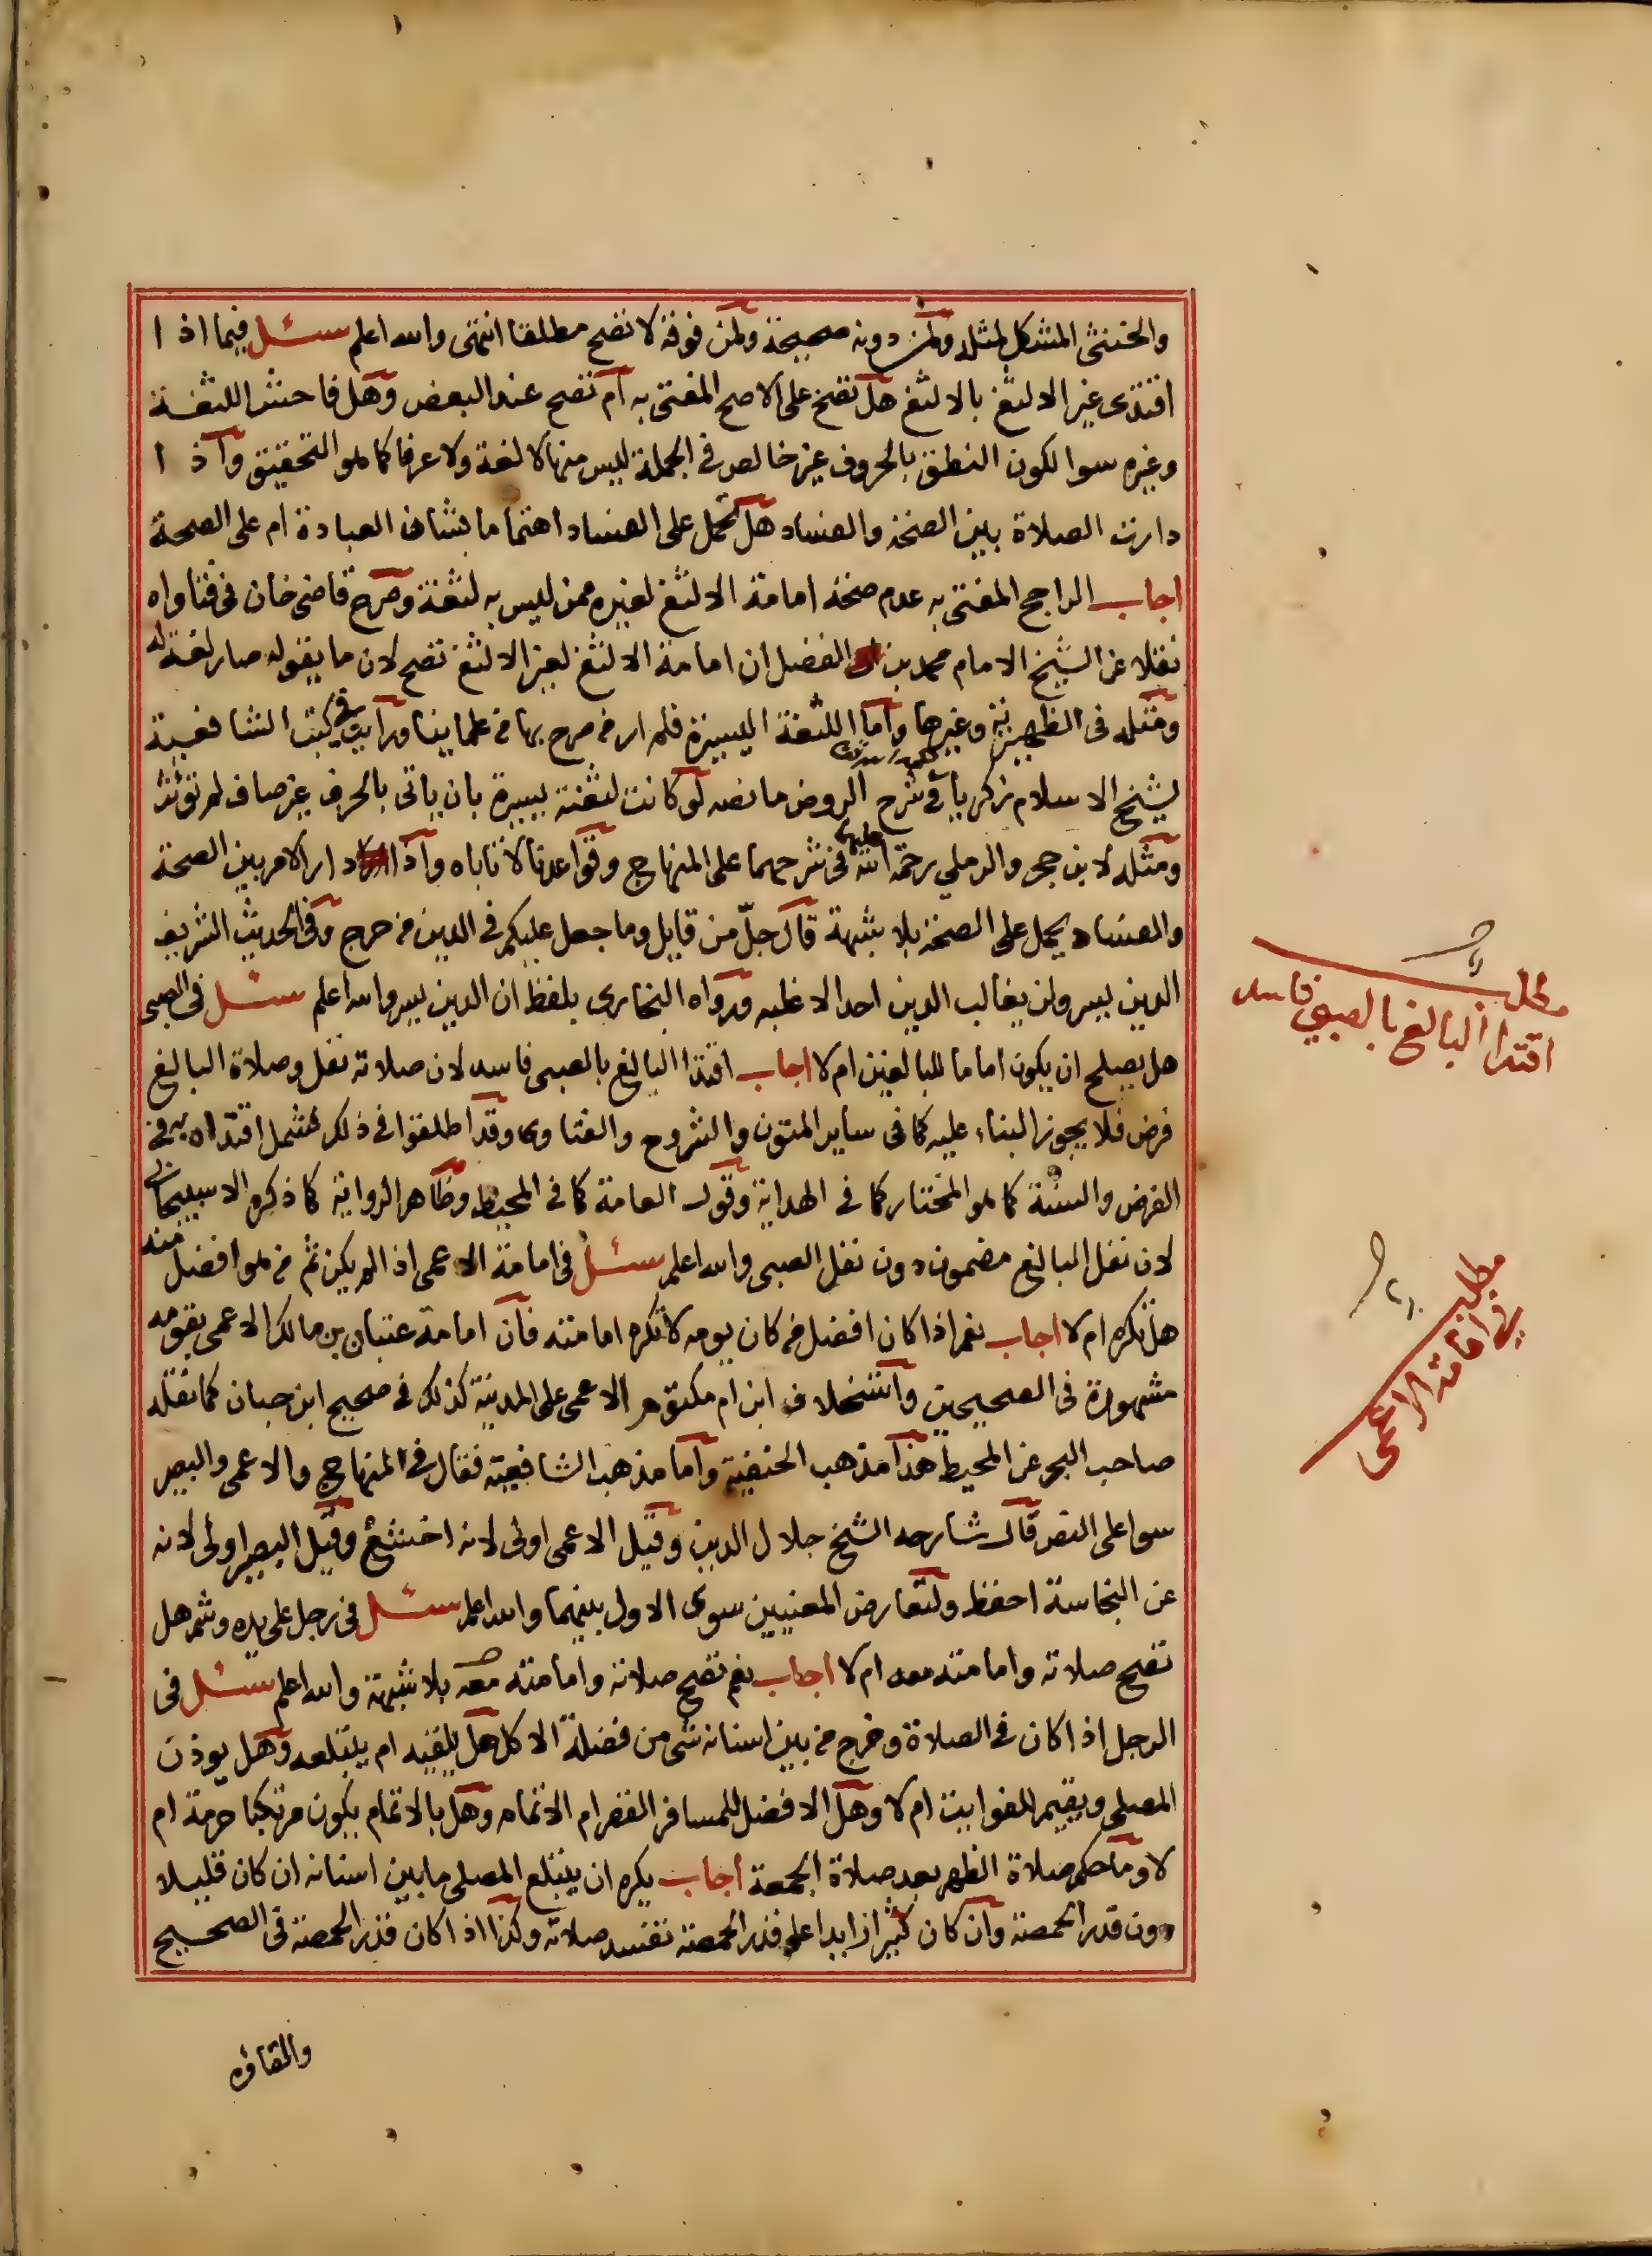 والخنثى المشكل لمثله ولمن دونه صحيحة ولمن فوقه لا تصح مطلقا انتهى والله اعلم سئل فيما اذا
اقتدى غير الالثغ بالالثغ هل تصح على الاصح المفتى به ام تصح عند البعض وهل فاحش اللثغة
وغيره سوا لكون النطق بالحروف غير خالص في الجملة ليس منها لا لغة ولا عرفا كما هو التحقيق واذا
دارت الصلاة بين الصحة والفساد هل تحمل على الفساد اهتماما بشان العبادة ام على الصحة
اجاب الراجح المفتى به عدم صحة امامة الالثغ لغيره ممن ليس به لثغة وصرح قاضى خان فى فتاواه
نقلا عن الشيخ الامام محمد بن الفضل ان امامة الالثغ لغير الالثغ تصح لان ما يقوله صار لغة له
ومثله فى الظهيرية وغيرها واما اللثغة اليسيرة فلم ار من صرح بها من علماينا ورايت في كتب الشافعية
لشيخ الاسلام زكريا فى شرح الروض ما نصه لو كانت لثغته يسيرة بان ياتى بالحرف غير صاف لم تؤثر
ومثله لابن حجر والرملي رحمة الله عليهما فى شرحيهما على المنهاج وقواعدنا لا تاباه واذا دار الامر بين الصحة
والفساد يحمل على الصحة بلا شبهة قال جلّ من قايل وما جعل عليكم فى الدين من حرج وفى الحديث الشريف
الدين يسر ولن يغالب الدين احد الا غلبه ورواه البخارى بلفظ ان الدين يسر والله اعلم سئل فى الصبى
هل يصلح ان يكون اماما للبالغين ام لا اجاب اقتدا البالغ بالصبى فاسد لان صلاته نفل وصلاة البالغ
فرض فلا يجوز البناء عليه كما فى ساير المتون والشروح والفتاوى وقد اطلقوا فى ذلك فشمل اقتداه به فى
الفرض والسنة كما هو المختار كما فى الهداية وقول العامة كما فى المحيط وظاهر الرواية كما ذكره الاسبيجابى
لان نفل البالغ مضمون دون نفل الصبى والله اعلم سئل فى امامة الاعمى اذا لم يكن ثم من هو افضل منه
هل تكره ام لا اجاب نعم اذا كان افضل من كان يومه لا تكره امامته فان امامة عتبان بن مالك الاعمى بقومه
مشهورة فى الصحيحين واستخلاف ابن ام مكتوم الاعمى على المدينة كذلك فى صحيح ابن حبان كما نقله
صاحب البحر عن المحيط هذا مذهب الحنفية واما مذهب الشافعية فقال فى المنهاج والاعمى والبصير
سوا على النص قال شارحه الشيخ جلال الدين وقيل الاعمى اولى لانه اخشع وقيل البصير اولى لانه
عن النجاسة احفظ ولتعارض المعنيين سوى الاول بينهما والله اعلم سئل فى رجل على يده وشم هل
تصح صلاته وامامته معه ام لا اجاب نعم تصح صلاته وامامته معه بلا شبهة والله اعلم سئل فى
الرجل اذا كان فى الصلاة وخرج من بين اسنانه شى من فضلة الاكل هل يلقيه ام يبتلعه وهل يوذن
المصلى ويقيم للفوايت ام لا وهل الافضل للمسافر القصر ام الاتمام وهل بالاتمام يكون مرتكبا حرمة ام
لا وما حكم صلاة الظهر بعد صلاة الجمعة اجاب يكره ان يبتلع المصلى ما بين اسنانه ان كان قليلا
دون قدر الحمصة وان كان كثيرا زايدا على قدر الحمصة تفسد صلاته وكذا اذا كان قدر الحمصة فى الصحيح
مطلب
اقتدا البالغ بالصبي فاسد
مطلب
في امامة الاعمى